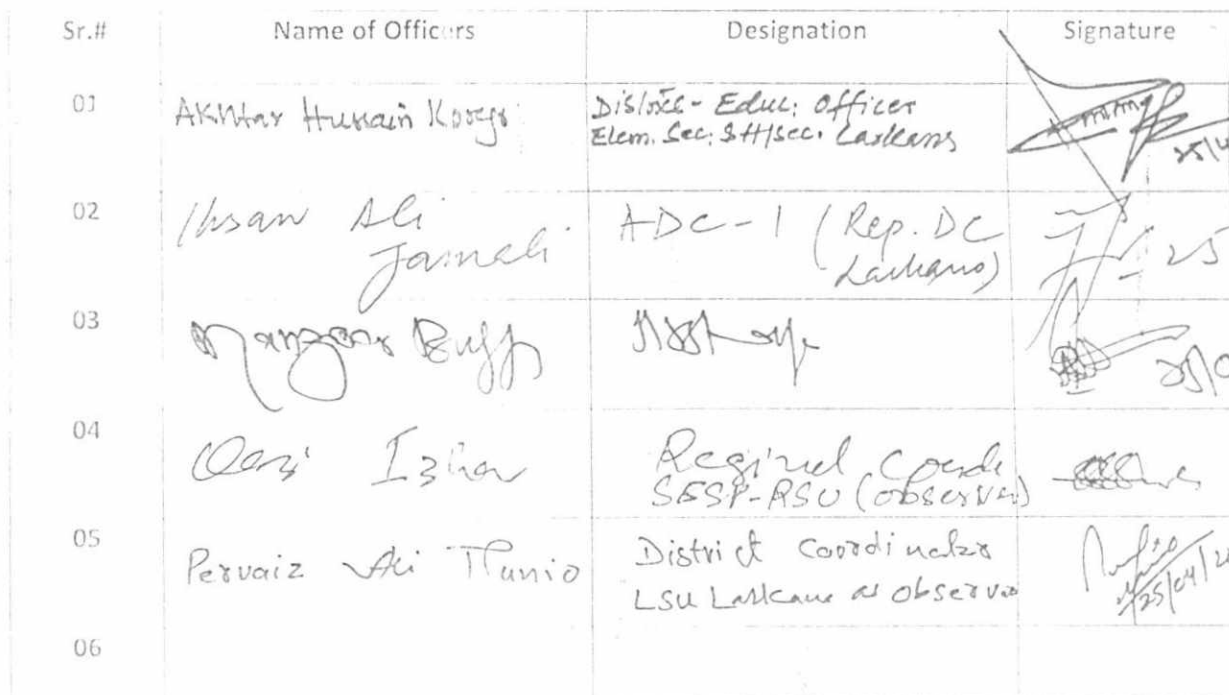 Sr.# Name of Officers Designation Signature
01 Akhtar Hussain District Educ: Officer
Elem. Sec: & H/Sec. Larkana
25/
02 Ihsan Ali ADC-1 (Rep. DC
Jamali Larkano) 25
03 Manzoor
04 Qazi Izhar Reginel Coordi
SESP-RSU (Observer)
05 Pervaiz Ali Thunio District Coordinator
LSU Larkana as observer 25/04/
06